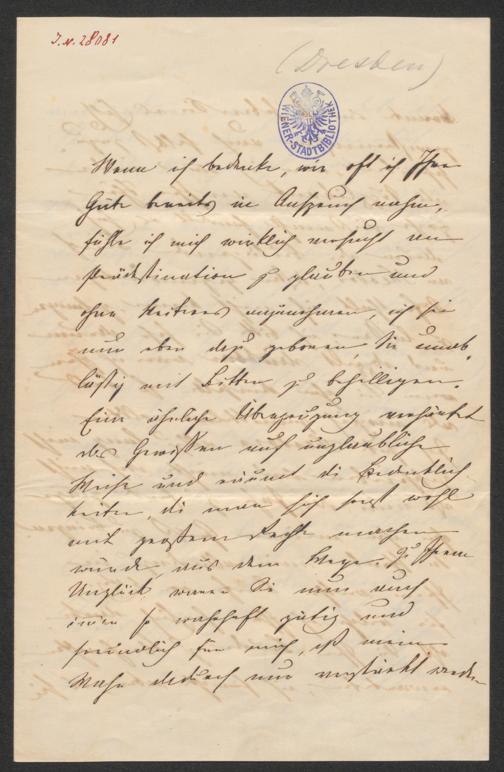 I.N. 28081
(Dresden)
WIENER-STADTBIBLIOTHEK
Wenn ich bedenke, wie oft ich Ihre
Güte bereits in Anspruch nahm,
fühle ich mich wirklich versucht an
Prädestination zu glauben und
ohne Weiteres anzunehmen, ich sei
nun eben dazu geboren, Sie unab-
lässig mit Bitten zu behelligen.
Eine ähnliche Überzeugung verhärtet
das Gewissen auf unglaubliche
Weise und räumt die Bedenklich-
keiten, die man sich sonst wohl
mit großem Recht machen
würde, aus dem Wege. Zu Ihrem
Unglück waren Sie nun auch
immer so wahrhaft gütig und
freundlich für mich, daß mein
Wahn dadurch nur verstärkt werden